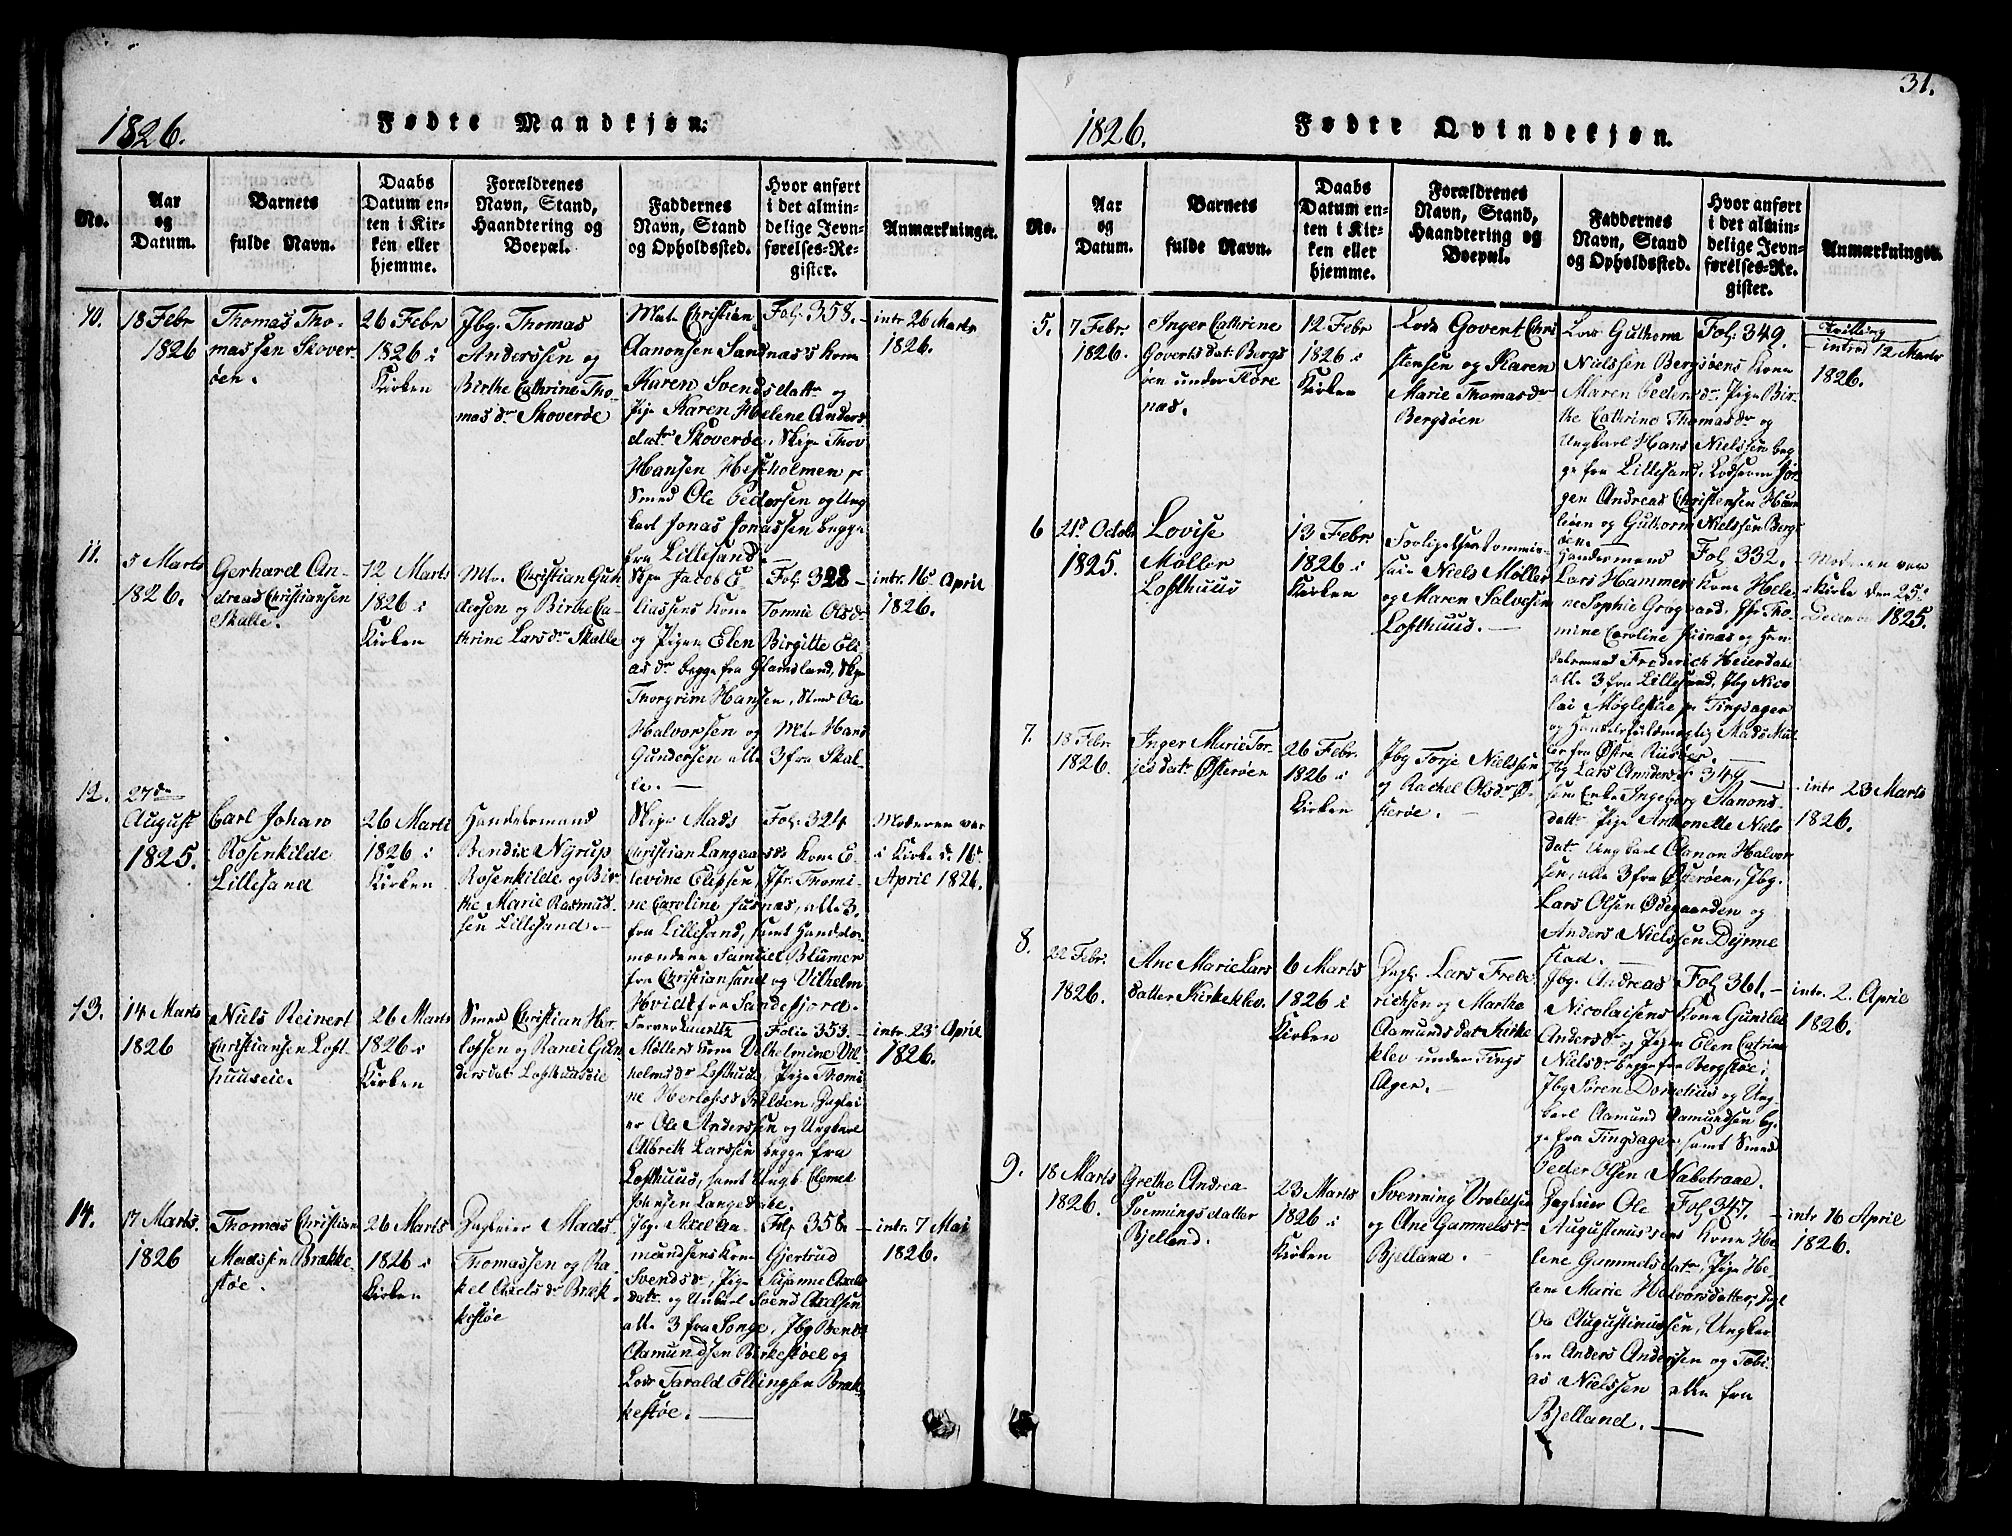 1826.
Fødte Mandkjøn:
No.
Aar
og
Datum.
Barnets
fulde Navn.
Daabs
Datum en-
ten i Kir-
ken eller
hjemme.
Forældrenes
Navn, Stand,
Haandtering og
Boepæl.
Faddernes
Navn, Stand
og Opholdssted.
Hvor anført
i det almin-
delige Jevn-
førelses-Re-
gister.
Anmærkninger.
10.
18 Febr
1826
Thomas Tho-
massen Skover-
øen.
26 Febr
1826 i
Kirken
Jbg. Thomas
Anderssen og
Birthe Cathrine Tho-
mas dr Skoverøe
Mat. Christian
Aanonsen Sandnass kone
Karen Svends datr og
Pige Karen Helene Anders
datr Skoverøe, Skipr Thor
Hansen Hestholmen
Smed Ole Pedersen og Ung
karl Jonas Jonassen begge
fra Lillesand.
Fol. 358.
intr 26 Marts
1826.
11.
5 Marts
1826.
Gerhard An-
dreas Christiansen
Skalle.
12 Marts
1826 i
Kirken
Mtr. Christian Gun-
dersen og Birthe Ca-
thrine Lars dr Skalle
Skipr Jacob E
liassens Kone Tomine Olsdr
og Pigen Elen Birgitte Eli
as dr begge fra Glamsland, Skpr
Thorgrim Hansen, Smed Ole
Halvorsen og Mtr Hans
Gundersen alle 3 fra Skal-
le.
Fol. 328
intr. 16 April
1826.
12.
27de
August
1825.
Carl Johan
Rosenkilde
Lillesand
26 Marts
1826 i
Kirken
Handelsmand
Bendix Nyrup
Rosenkilde og Bir-
the Marie Rasmus-
sen Lillesand.
Skipr Mads
Christian Langaards Kone E-
levine Ellefsen, Jfr. Thomi-
ne Caroline Juknas, alle 3
fra Lillesand, samt Handels-
mændene Samuel Blumer
fra Christiansund og Vilhelm
Hvidt fra Sandefjord.
Fol. 324
Moderen var
i Kirke d. 16
April 1826.
13.
14 Marts
1826
Niels Reinert
Christiansen Loft-
huuseie.
26 Marts
1826 i
Kirken
Smed Christian Her-
lofsen og Ranei Gun
dersdatr Lofthuuseie
Møllers kone Vilhelmine Vil-
helms dr Lofthuus, Pige Thomi
ne
er Ole Anderssen og Ungkarl
Albreth Larssen begge fra
Lofthuus, samt Ungk. Clemet
Johansen Langedahl.
Folio 353.
intr. 23 April
1826.
14.
17 Marts.
1826
Thomas Christian
Madssen Brække-
støe.
26 Marts
1826 i
Kirken
Dagleier Mads
Thomassen og Ra-
kel Axels dr Bræk-
kestøe
Jbg. Axel Aa-
mundsens Kone Gjertrud
Svends dr, Pige Susanne Axels
datr og Unkarl Svend Axelsen
alle 3 fra Songe, Jbg Bendt
Aamundsen Birkestøel og
Lods Tarald Ellingsen Bræk-
kestøe.
Fol. 358
intr. 7 Mai
1826.
31.
1826.
Fødte Qvindekjøn.
No.
Aar
og
Datum.
Barnets
fulde Navn.
Daabs
Datum en-
ten i Kir-
ken eller
hjemme.
Forældrenes
Navn, Stand,
Haandtering og
Boepæl.
Faddernes
Navn, Stand
og Opholdssted.
Hvor anført
i det almin-
delige Jevn-
førelses-Re-
gister.
Anmærkninger.
5.
7 Febr
1826.
Inger Cathrine
Goverts dat. Bergs
øen under Fløre
næs.
12 Febr
1826 i
Kirken
Lods Govert Chri
stensen og Karen
Marie Thomas dr
Bergsøen
Lods Guthorm
Nielssen Bergsøens Kone
Maren Peders dr. Pige Bir-
the Cathrine Thomas dr og
Ungkarl Hans Nielssen beg-
ge fra Lillesand, Lodserne Jør-
gen Andreas Christensen
øen og Guthorm Nielssen Bergs
øen.
Fol. 349.
intrd 12 Marts
1826.
6
21d October
1825.
Lovise
Møller
Lofthuus
13 Febr
1826 i
Kirken
saire Niels Møller
og Maren Salvesen
Lofthuus.
Handelsmand
Lars Hammers Kone Hele-
ne Sophie Grogaard, Jfr. Tho-
mine Caroline Juknas og Han-
delsmand Frederich Heierdahl
alle 3 fra Lillesand, Jbg Nico
lai Møglestue pr Tingsager
og Handelsfuldmægtig Mads Møl
ler fra Østre Riisøer.
Fol. 332.
Moderen var
i Kirke den 25
December 1825.
7.
18 Febr.
1826.
Inger Marie Tor-
jes datr Østerøen
26 Febr.
1826 i
Kirken
Jbg Torje Nielssen
og Rachel Olsdr Ø-
sterøe.
Jbg Lars Anders-
sen Enke Ingeborg Aanons-
datr. Pige Antonette Niels
datr. Ungkarl Aanon Halvor
sen, alle 3 fra Østerøen, Jbg.
Lars Olsen Ødegaarden og
Anders Nielssen Dyrne
stad.
349
intr 23 Marts
1826.
8.
22 Febr.
1826.
Ane Marie Lars
datter Kirkeklev.
6 Marts
1826 i
Kirken
Dagl. Lars Frede
richsen og Marthe
Aamunds dat. Kirke
klev under Tings
Ager.
Jbg. Andreas
Nicolaisens Kone Gunild
Anders dr og Pigen Elen Catrine
Niels dr begge fra Bergstøe,
Jbg Søren Dornelius og Ung
karl Aamund Aamundsen beg-
ge fra Tingsager samt Smed
Peder Olsen Nabotraae.
Fol. 361.
intr. 2. April
1826.
9.
18 Marts
1826.
Grethe Andrea
Svennings datter
Bjelland.
23 Marts
1826 i
Kirken
Svenning Vroldsen
og Ane Gammels dr
Bjelland.
Dagleier Ole
Augustinussens Kone He-
lene Gammels datr, Pige He-
lene Marie Halvorsdatter, Dagl
Ole Augustinussen, Ungkar-
len Anders Andersen og Tobi-
as Nielssen alle fra
Bjelland.
Fol. 347.
intr 16 April
1826.